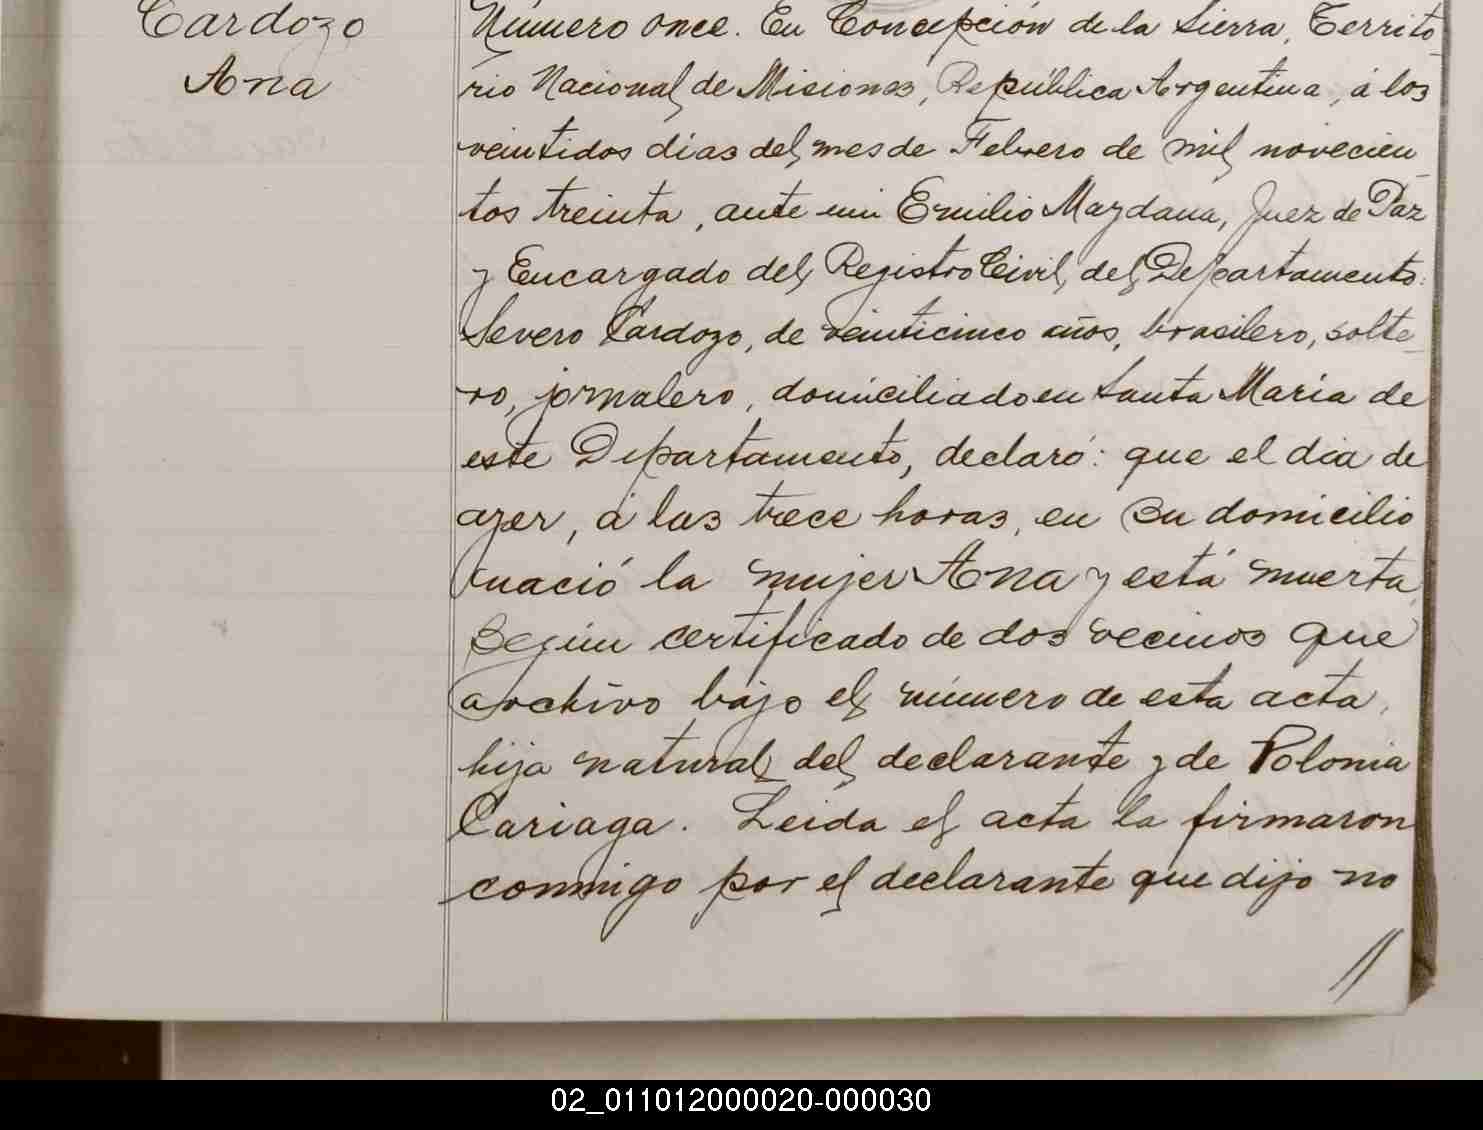 Cardozo
Ana
Número once. En Concepción de la Sierra, Territo
rio Nacional de Misiones, República Argentina, á los
veintidos dias del mes de Febrero de mil novecien
tos treinta, ante mi Emilio Maydana, Juez de Paz
y Encargado del Registro Civil del Departamento:
Severo Cardozo, de veinticinco años, brasilero, solte
ro, jornalero, domiciliado en Santa Maria de
este Departamento, declaró: que el dia de
ayer, á las trece horas, en su domicilio
nació la mujer Ana y está muerta,
segun certificado de dos vecinos que
archivo bajo el número de esta acta,
hija natural del declarante y de Polonia
Cariaga. Leida el acta la firmaron
conmigo por el declarante que dijo no
02_011012000020-000030